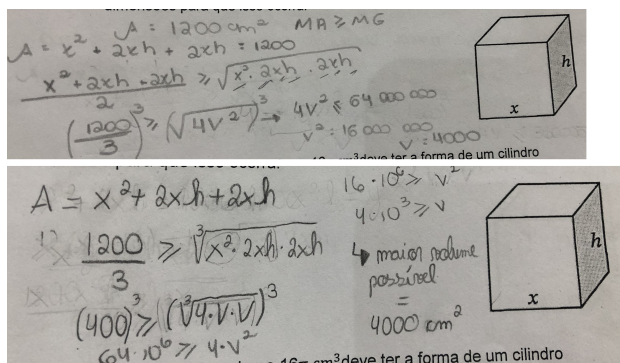 dimensões para que isso ocorra.
A = 1200 cm² MA ≥ MG
A = x² + 2xh + 2xh = 1200
x² + 2xh + 2xh / 2 ≥ √x² · 2xh · 2xh
(1200/3)³ ≥ (√4V²)³ → 4V² ≤ 64 000 000
V² = 16 000 000
V = 4000
h
x
cm³ deve ter a forma de um cilindro
para que isso ocorra.
A = x² + 2xh + 2xh
1200/3 ≥ ³√x² · 2xh · 2xh
(400)³ ≥ (³√4·V·V)³
64·10⁶ ≥ 4·V²
16·10⁶ ≥ V²
4·10³ ≥ V
↳ maior volume
possível
=
4000 cm²
h
x
16π cm³ deve ter a forma de um cilindro